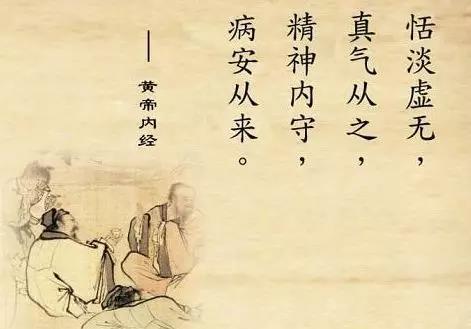 恬淡虚无，
真气从之，
精神内守，
病安从来。
— 黄帝内经